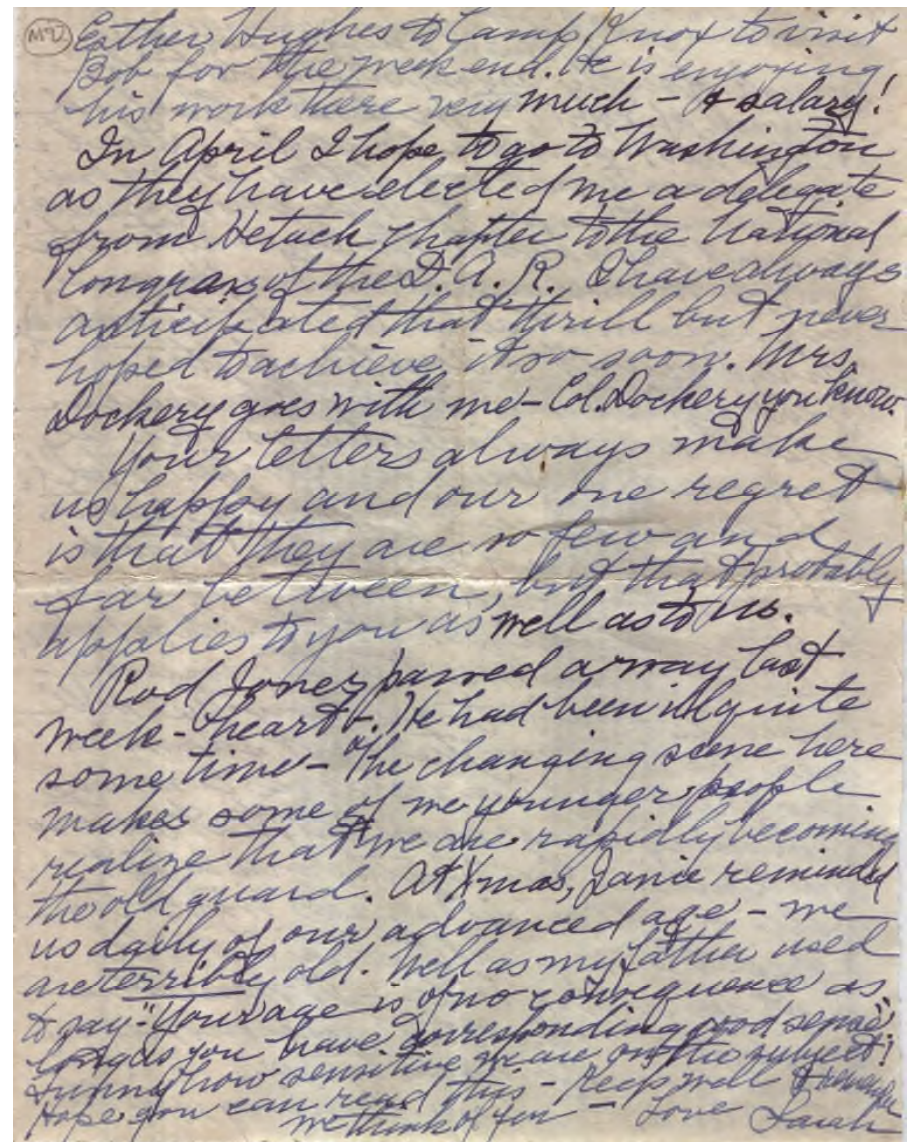 M97
Esther Hughes to Camp Knox to visit
Bob for the week end. He is enjoying
his work there very much - & salary!
In April I hope to go to Washington
as they have elected me a delegate
from Hetuck chapter to the National
Congress of the D. A. R. I have always
anticipated that thrill but never
hoped to achieve it so soon. Mrs.
Dockery goes with me - Col. Dockery you know.
Your letters always make
us happy and our one regret
is that they are so few and
far between, but that probably
applies to you as well as to us.
Rod Jones passed away last
week - heart -. He had been ill quite
some time - The changing scene here
makes some of we younger people
realize that we are rapidly becoming
the old guard. At Xmas, Janie reminded
us daily of our advanced age - we
are terribly old. Well as my father used
to say "Your age is of no consequence as
long as you have corresponding good sense"
Funny how sensitive we are on the subject!
Hope you can read this - Keep well & remember
we think of you - Love Sarah